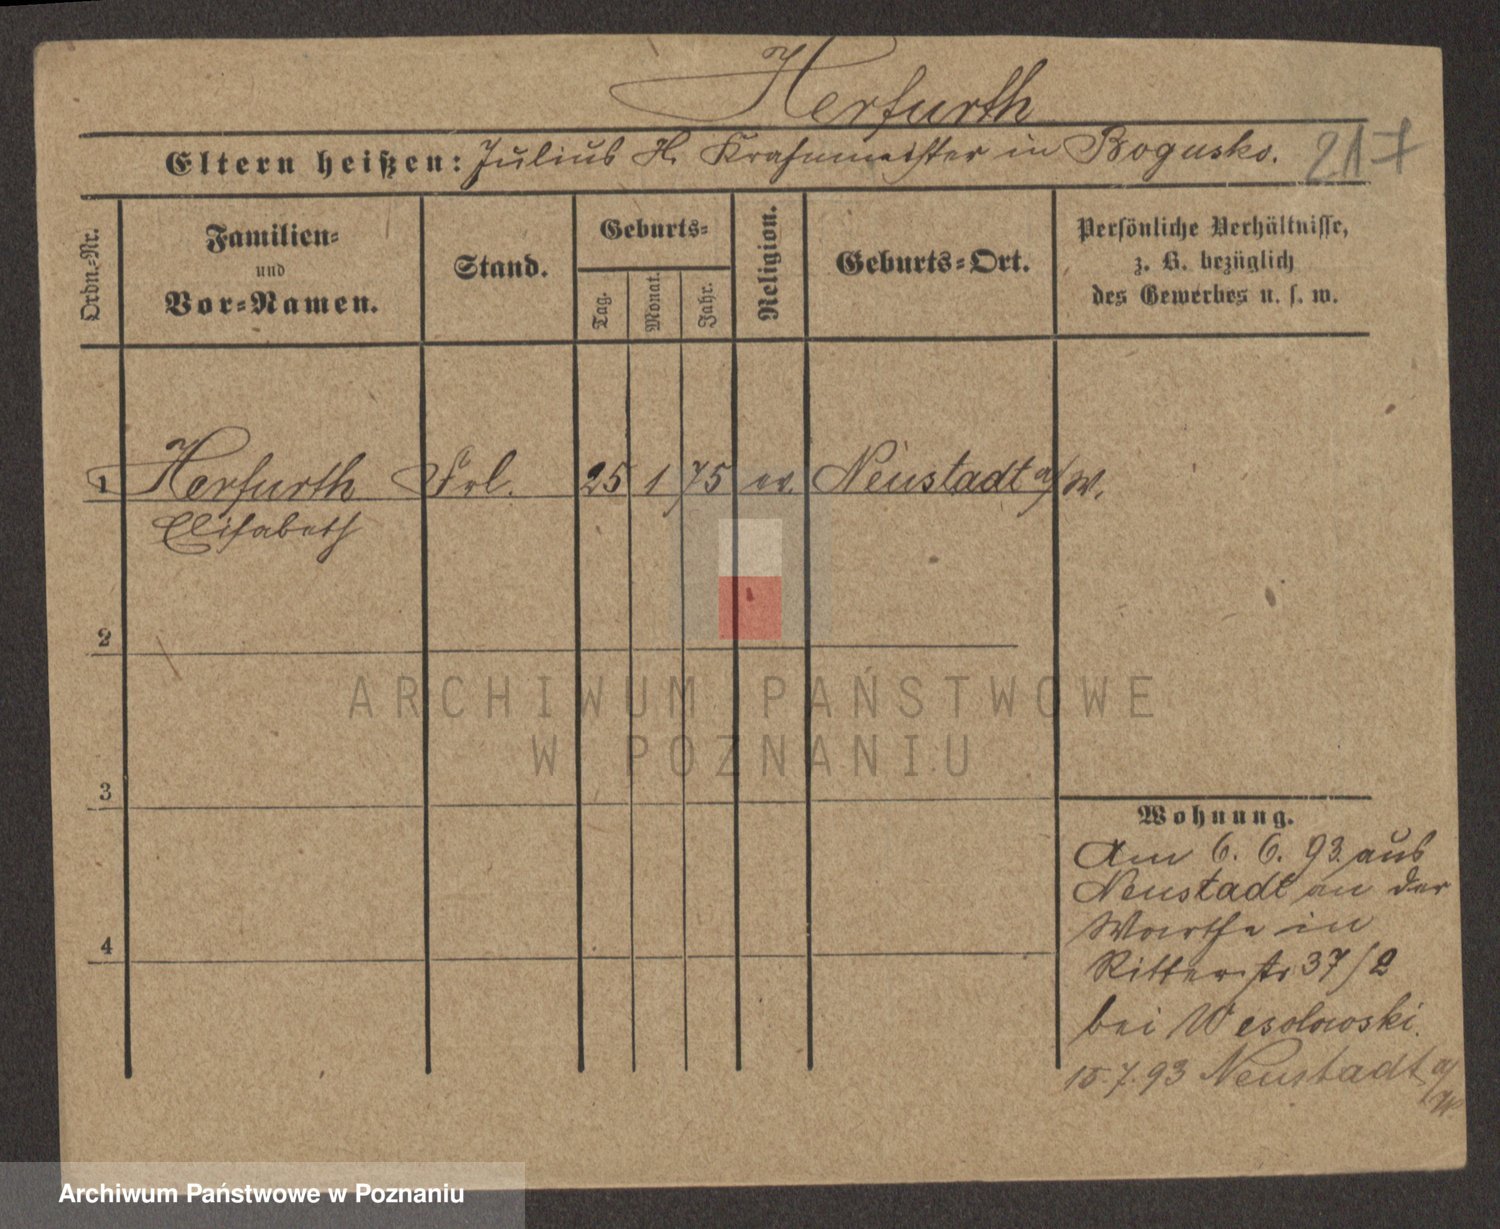 Herfurth
Eltern heißen: Julius H. Krahnmeister in Bogusko.
217
Ordn.-Nr.
Familien-
und
Vor-Namen.
Stand.
Geburts-
Tag.
Monat.
Jahr.
Religion.
Geburts-Ort.
Persönliche Verhältnisse,
z. B. bezüglich
des Gewerbes u. s. w.
1 Herfurth Frl. 25 1 75 ev. Neustadt a/W.
Elisabeth
2
3
4
ARCHIWUM PAŃSTWOWE
W POZNANIU
Wohnung.
Am 6. 6. 93 aus
Neustadt an der
Warthe in
Ritterstr 37/2
bei Wesolowski.
15.7.93 Neustadt a/
W
Archiwum Państwowe w Poznaniu